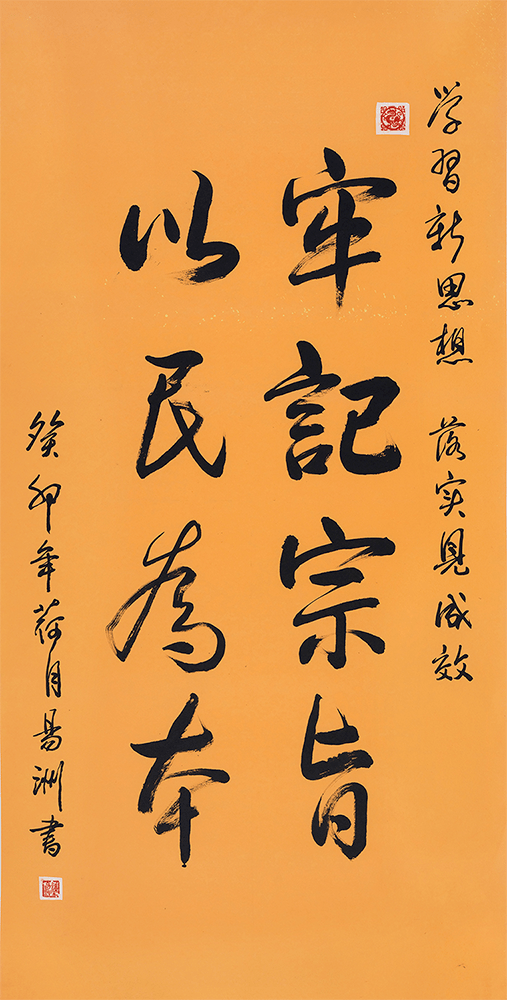 学習新思想 落实見成效
牢記宗旨
以民為本
癸卯年荷月易洲書